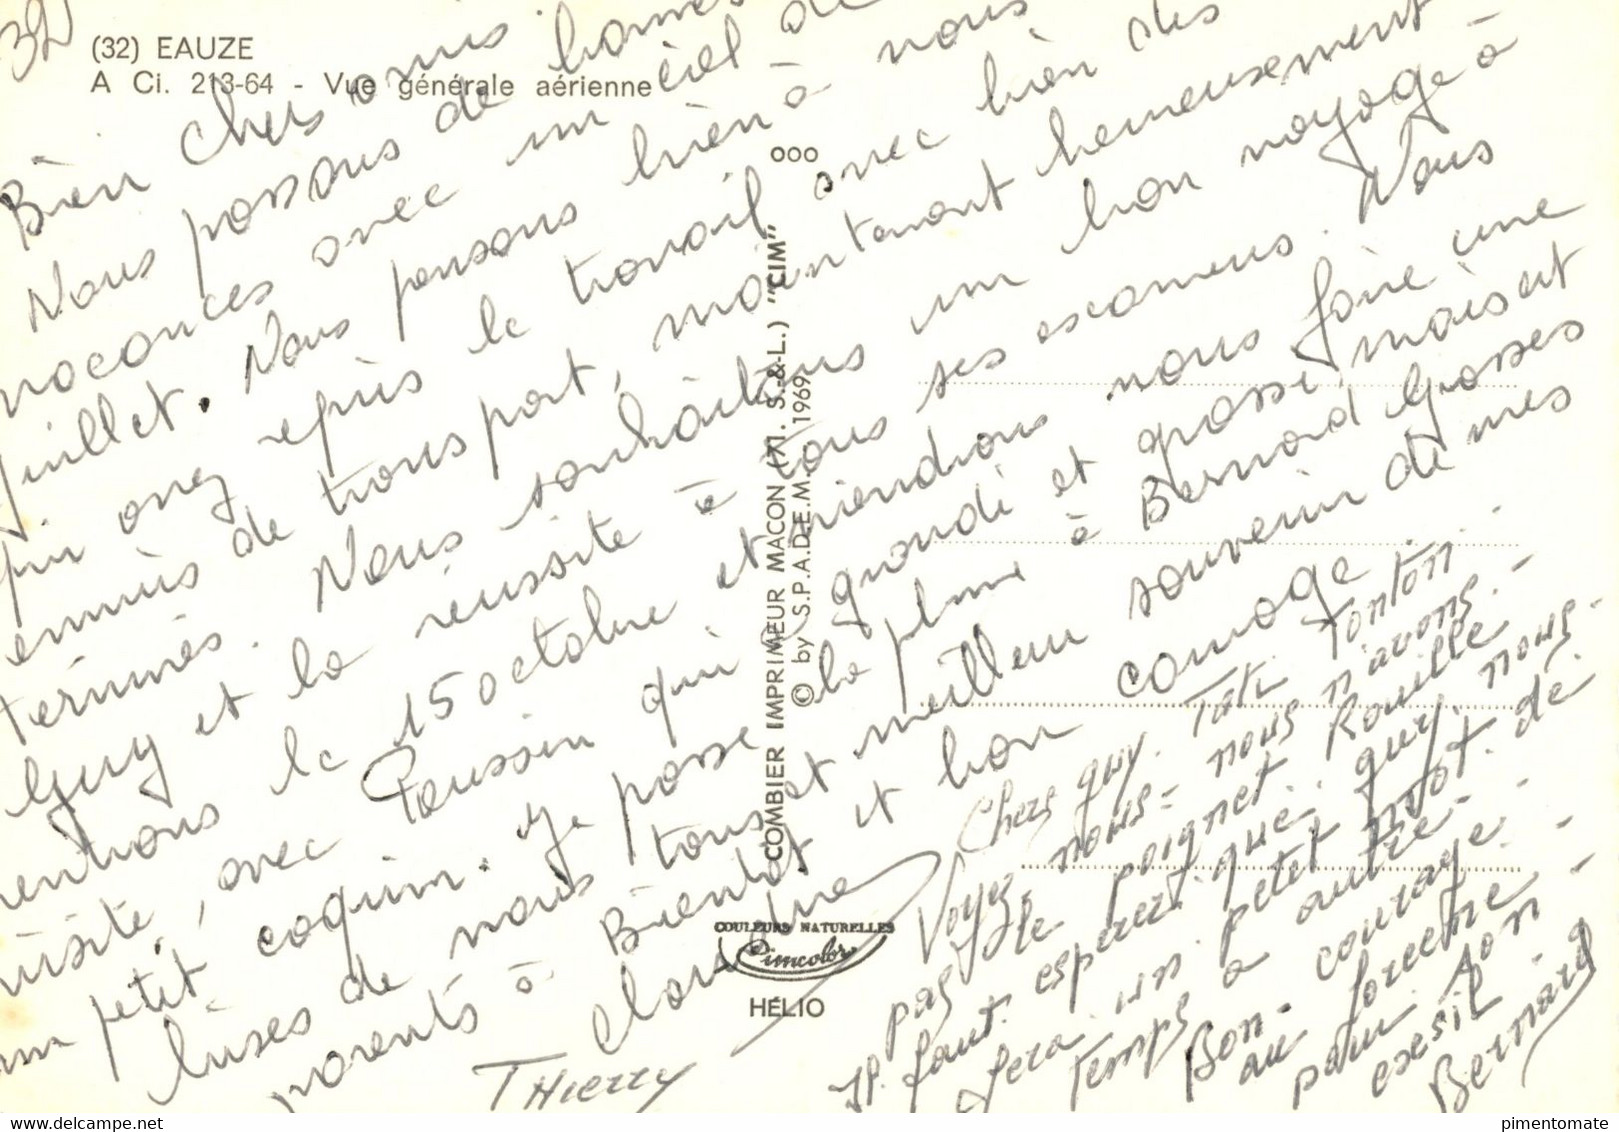 32
(32) EAUZE
A Ci. 213-64 - Vue générale aérienne
Bien chers amis.
Nous passons de bonnes
vacances avec un ciel de
juillet. Nous pensons bien à vous
qui avez repris le travail avec bien des
ennuis de transport, maintenant heureusement
terminés. Nous souhaitons un bon voyage à
Guy et la réussite à tous ses examens. Nous
rentrons le 15 octobre et viendrons vous faire une
visite, avec Poussin qui grandi et grossi, mais est
un petit coquin. Je passe la plume à Bernard Grosses
bises de nous tous et meilleur souvenir de mes
parents à Bientôt et bon courage.
Claudine
THIERRY
Chers guy. Tati Tonton.
Voyez nous- nous n'avons.
pas le poignet Rouille
Il faut esperer que guy nous-
fera un petet mot. de
Temps a autre-
Bon- courage.
au
pour son
exsil-
Bernard
COMBIER IMPRIMEUR MACON (71. S.-&-L.) "CIM"
© by S.P.A.D.E.M. 1969
ooo
COULEURS NATURELLES
Cimcolor
HÉLIO
pimentomate